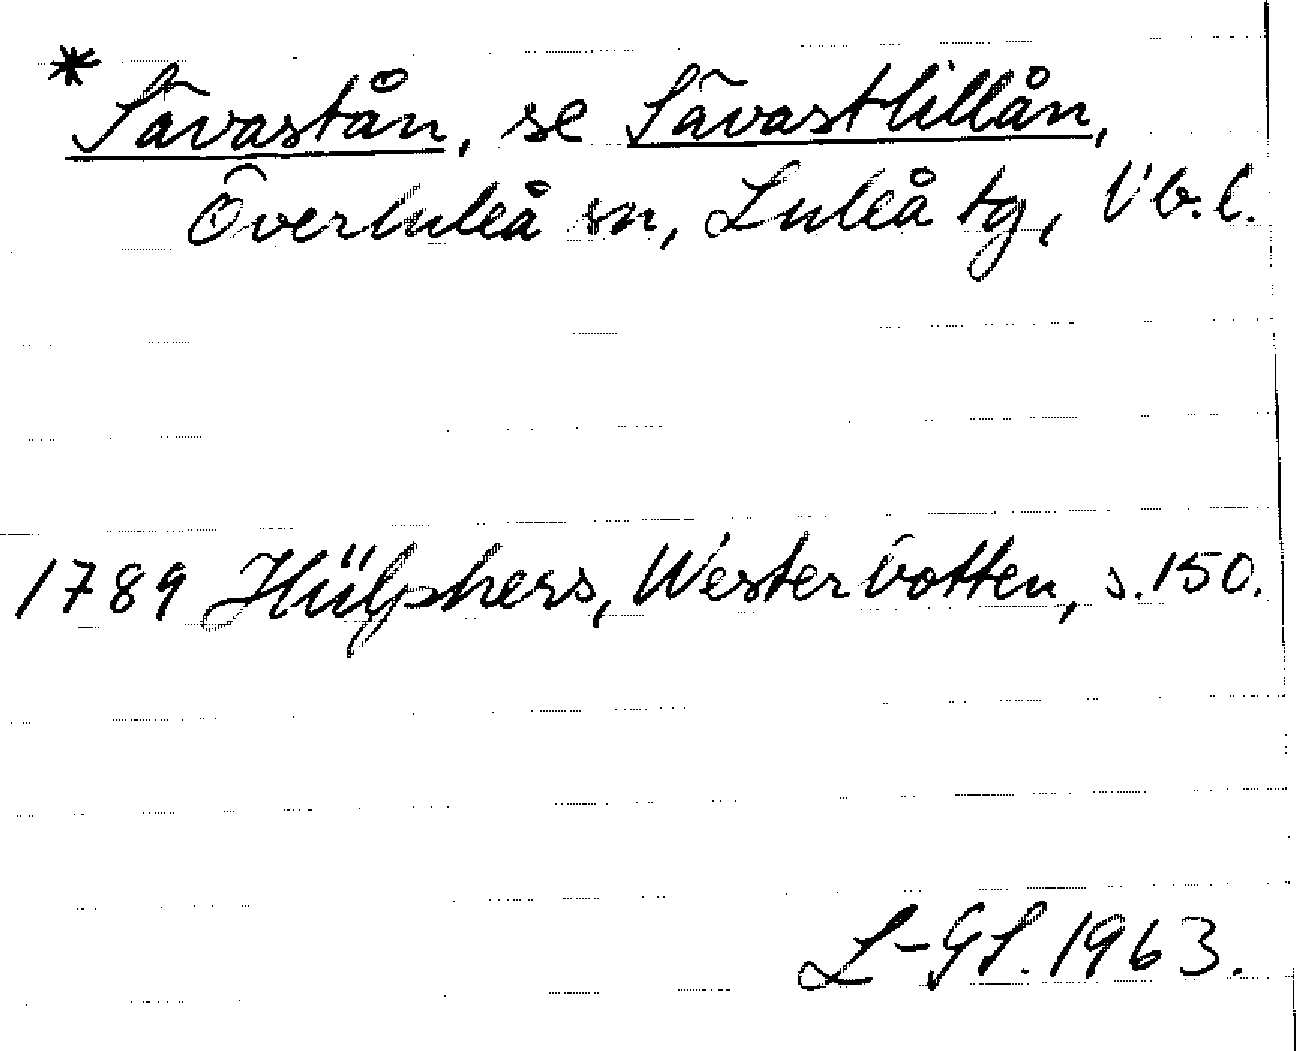 * Sävastån, se Sävastlillån,
Överluleå sn, Luleå tg, Vb.l.
1789 Hülphers, Westerbotten, s.150.
L-GL. 1963.